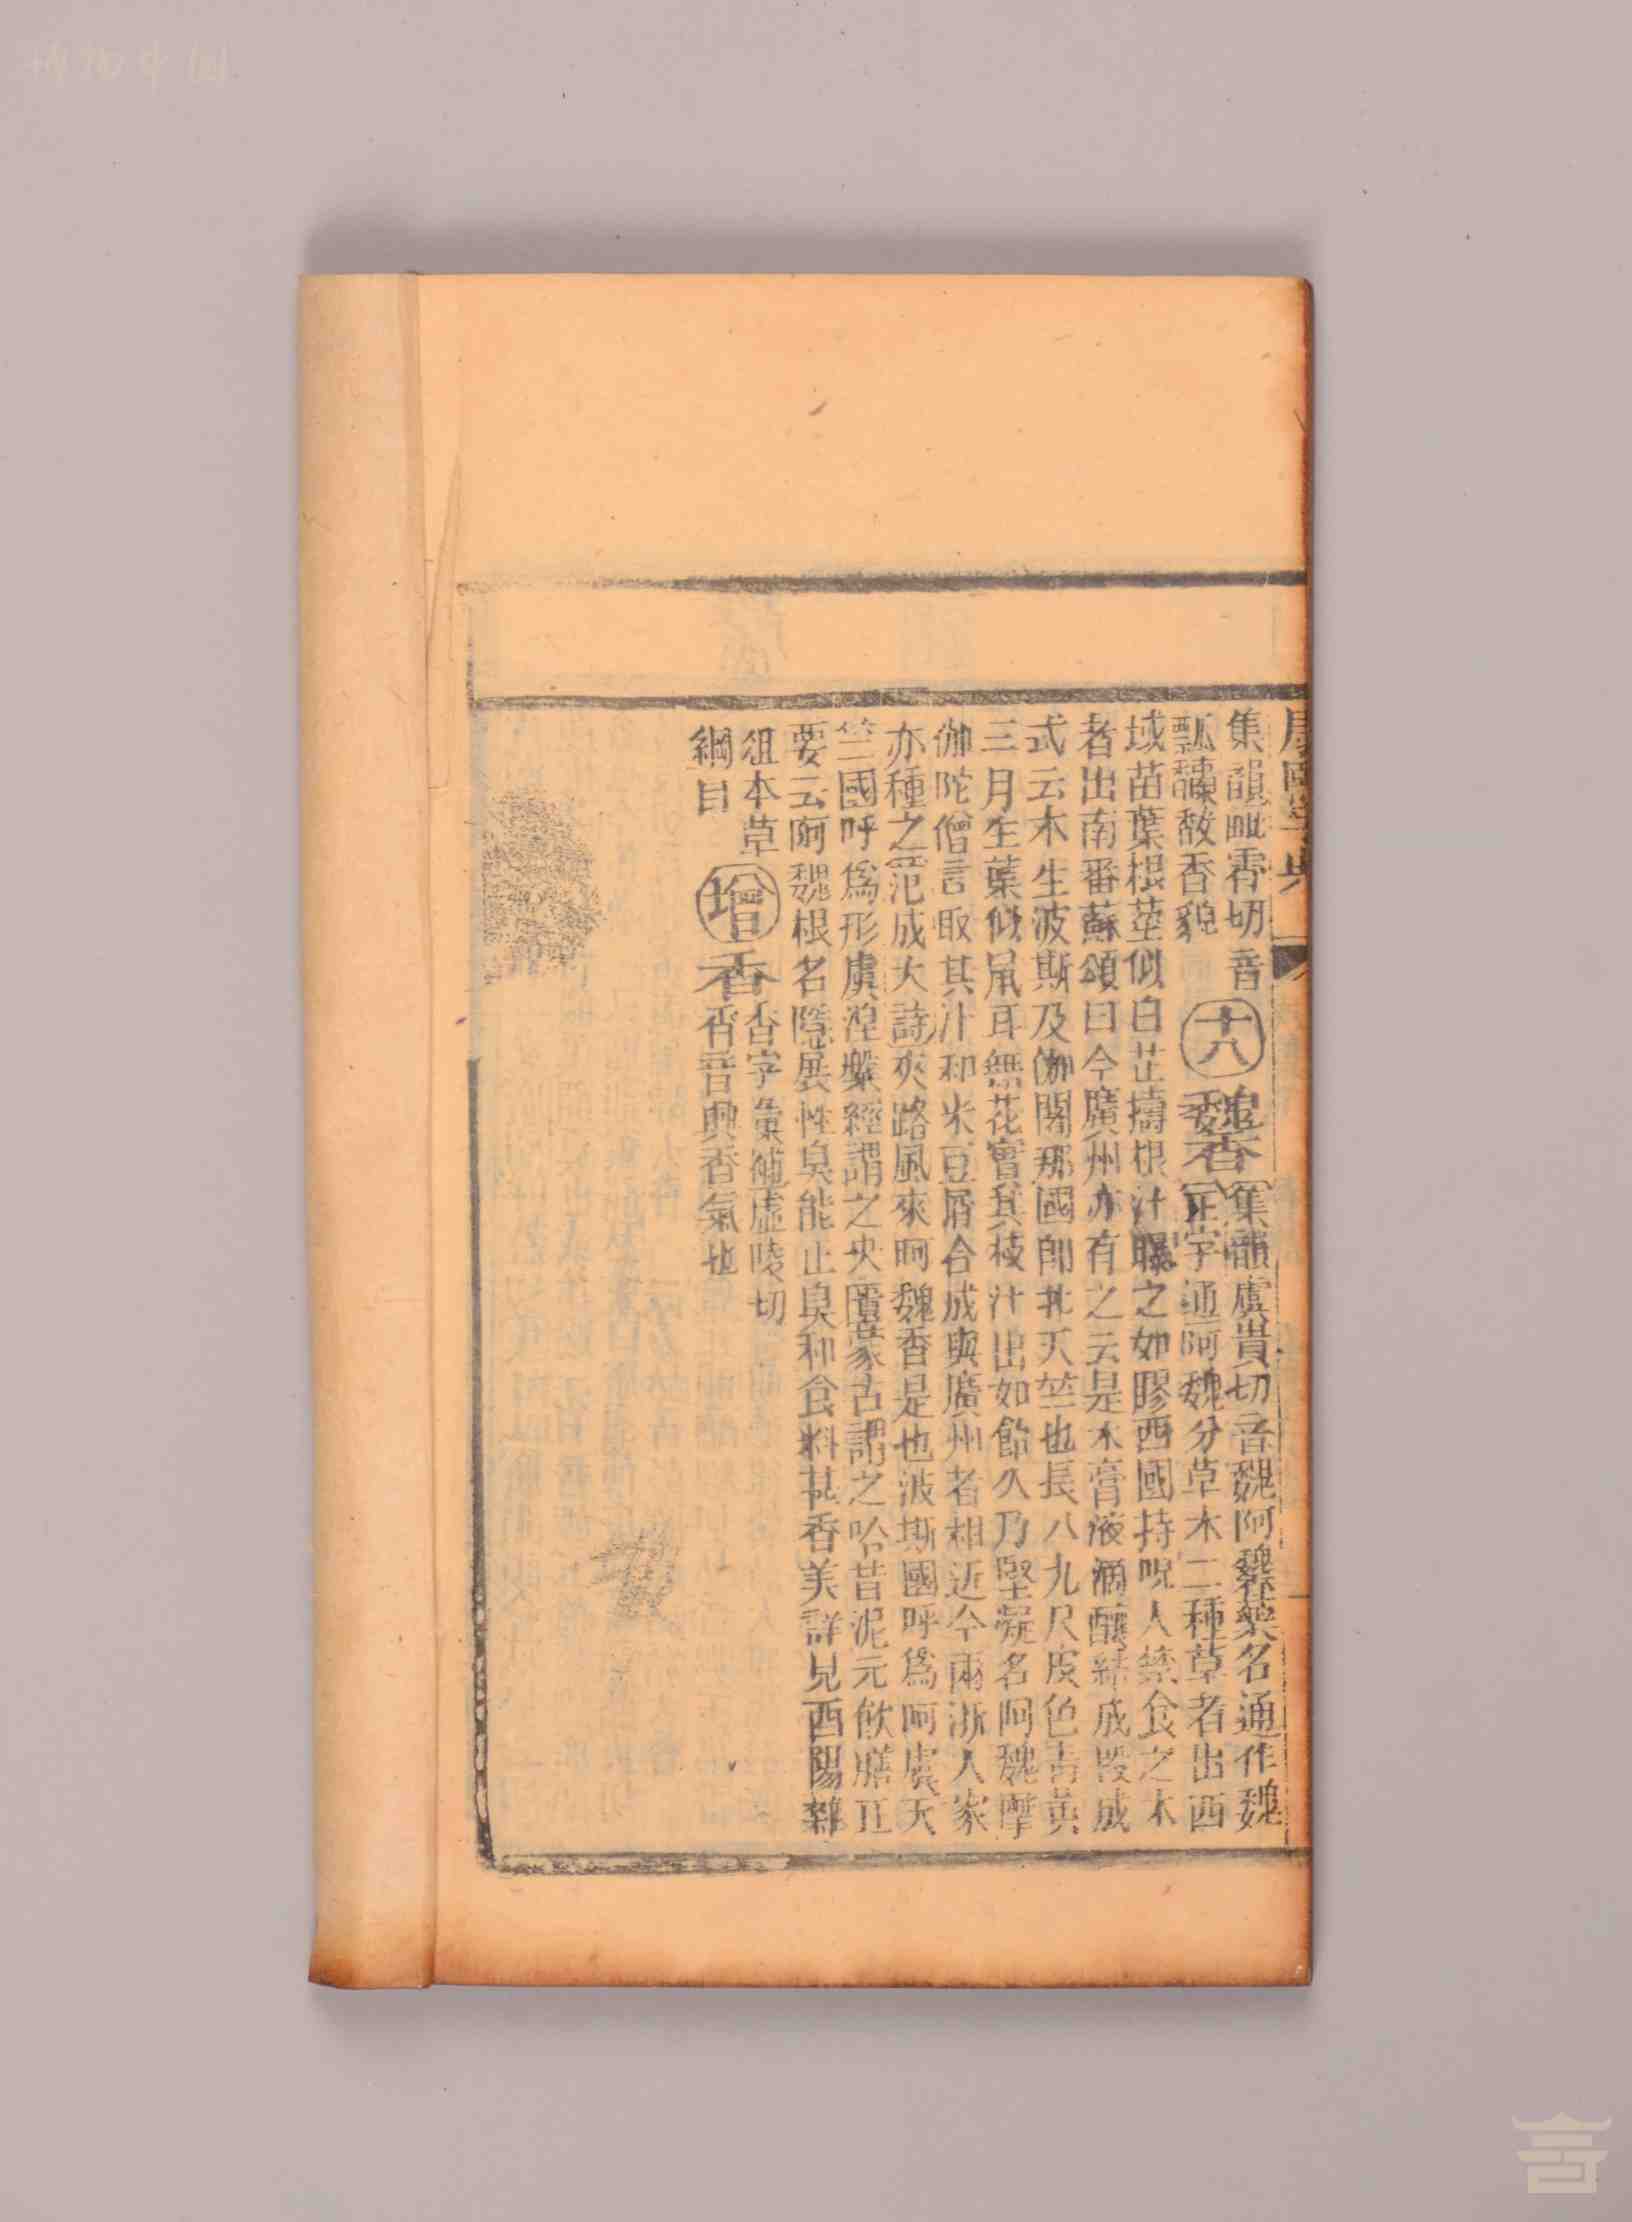 康熙字典
集韻毗霄切音⑱魏香集韻虞貴切音魏阿魏藥名通作魏
飄馞馥香貌正字通阿魏分草木二種草者出西
域苗葉根莖似白芷擣根汁曝之如膠西國持呪人禁食之木
者出南番蘇頌曰今廣州亦有之云是木膏液滴釀結成段成
式云木生波斯及伽闍那國卽北天竺也長八九尺皮色靑黃
三月生葉似鼠耳無花實其枝汁出如飴久乃堅凝名阿魏摩
伽陀僧言取其汁和米豆屑合成與廣州者相近今兩浙人家
亦種之范成大詩夾路風來阿魏香是也波斯國呼爲阿虞天
竺國呼爲形虞涅槃經謂之央匱蒙古謂之哈昔泥元飮膳正
要云阿魏根名隱展性臭能止臭和食料甚香美詳見酉陽雜
俎本草 增 香 字彙補虛陵切
綱目 音興香氣也